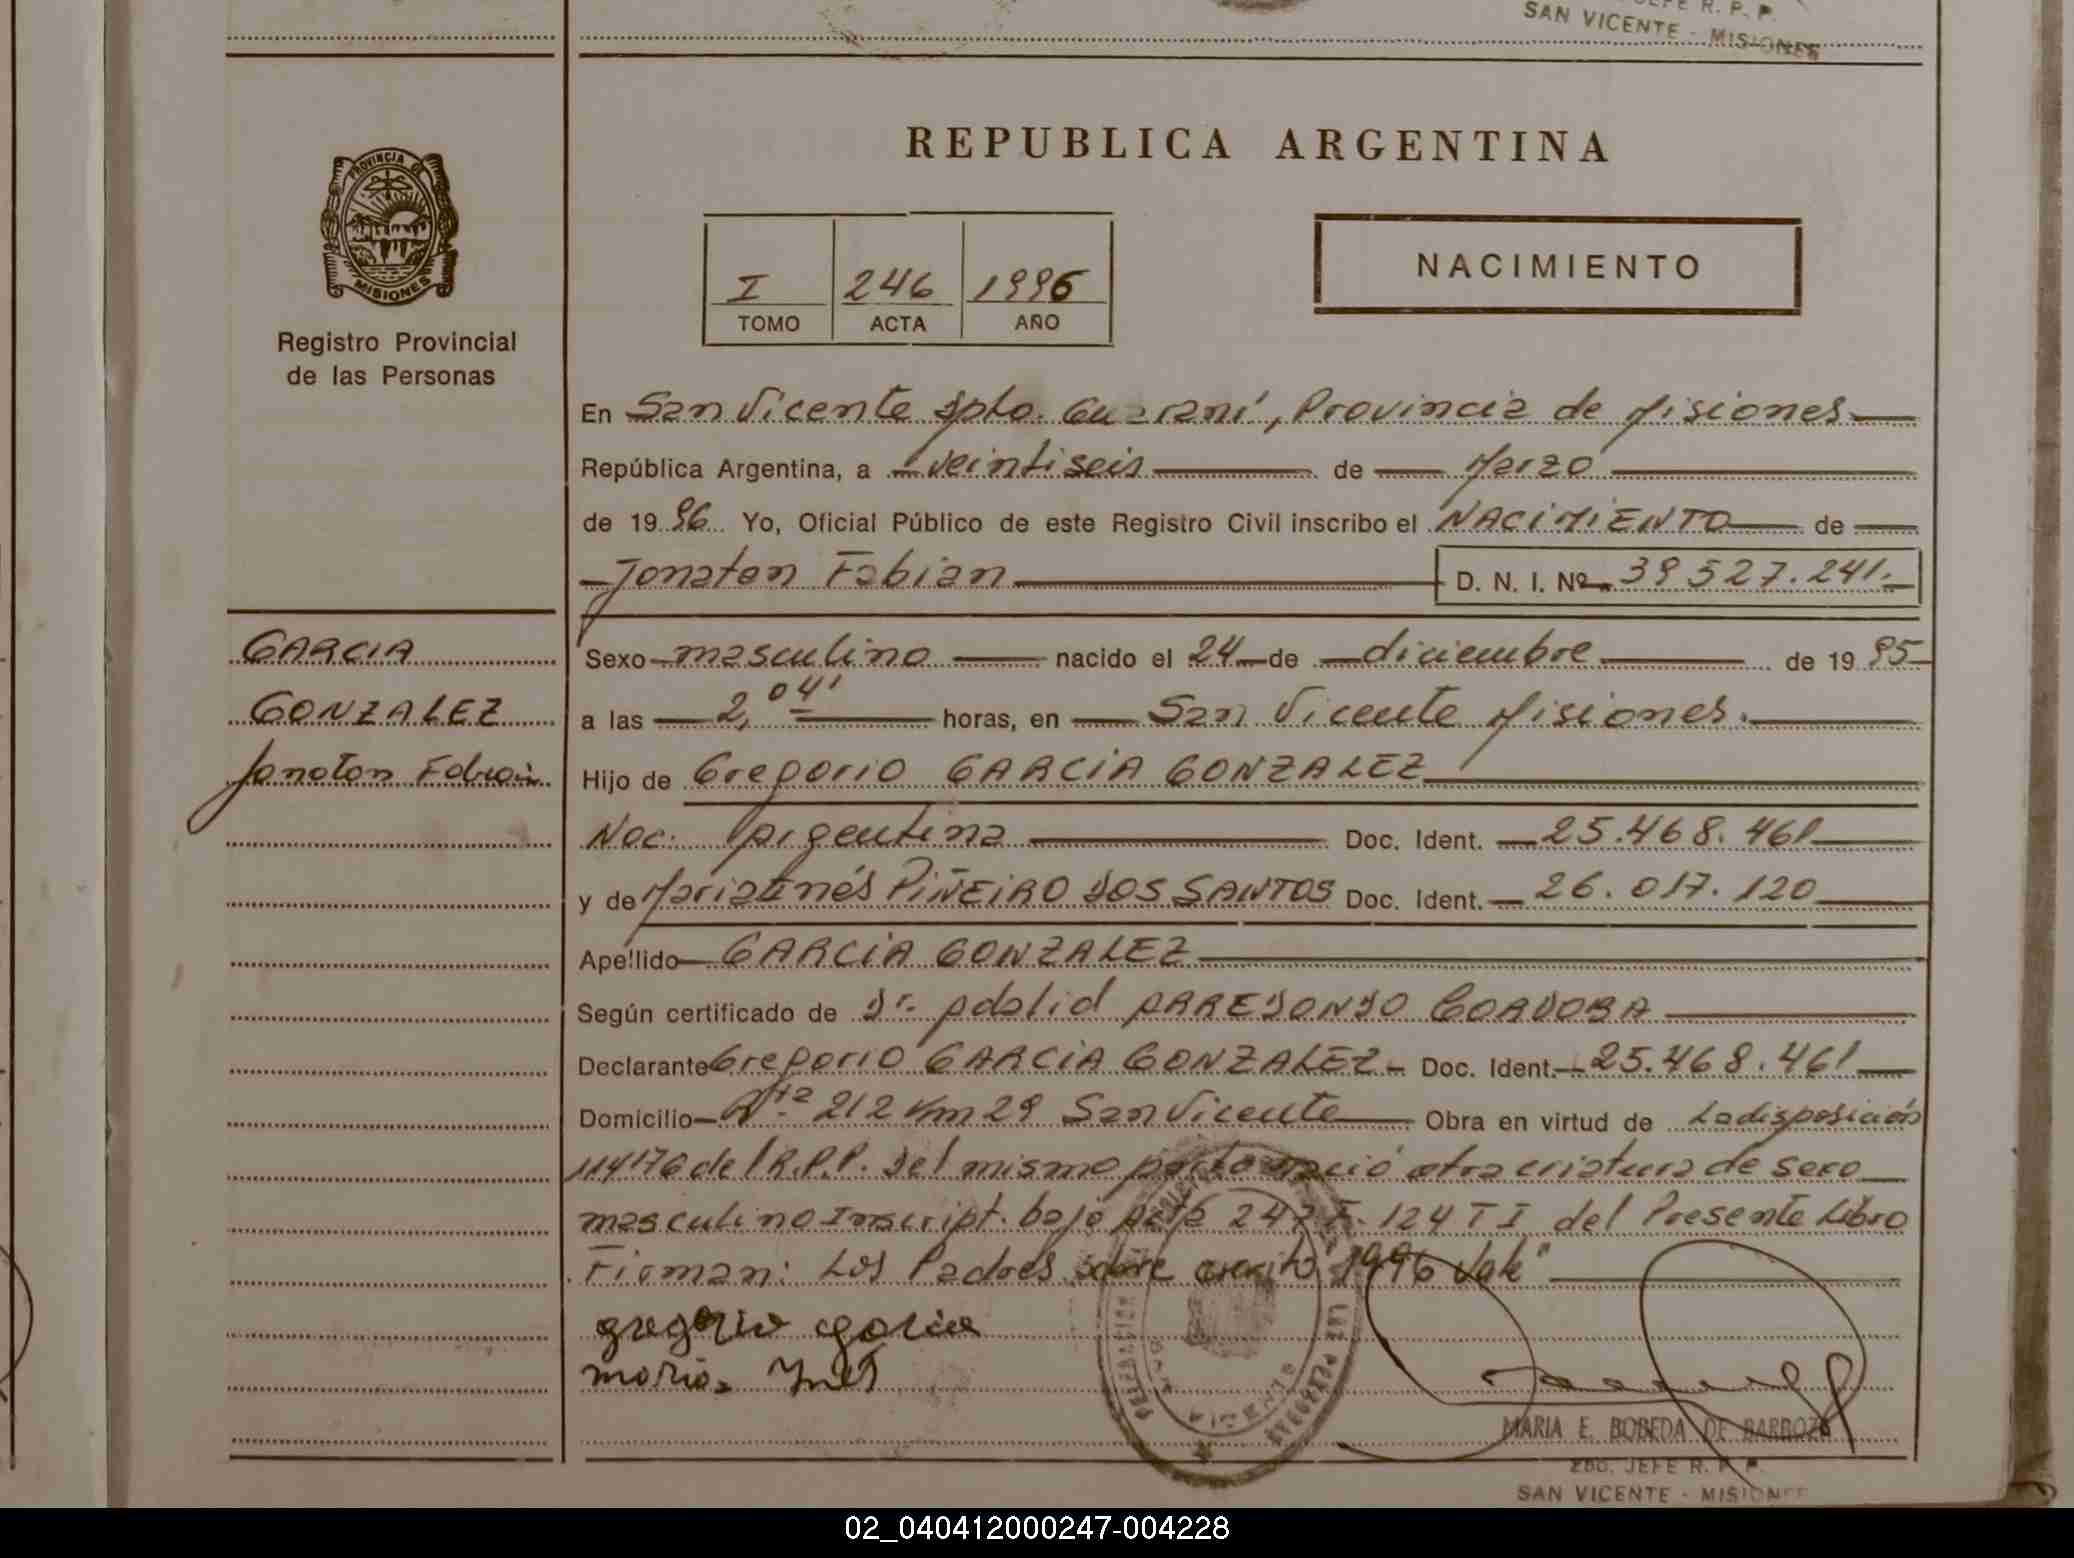 JEFE R. P. P.
SAN VICENTE - MISIONES
REPUBLICA ARGENTINA
PROVINCIA DE
MISIONES
Registro Provincial
de las Personas
I 246 1996
TOMO ACTA AÑO
NACIMIENTO
En San Vicente Dpto. Guaraní, Provincia de Misiones
República Argentina, a veintiseis de Marzo
de 1996 Yo, Oficial Público de este Registro Civil inscribo el NACIMIENTO de
Jonatan Fabian D. N. I. Nº 39.527.241.
GARCIA
GONZALEZ
Jonatan Fabian
Sexo masculino nacido el 24 de diciembre de 1995
a las 2,04' horas, en San Vicente Misiones.
Hijo de Gregorio GARCIA GONZALEZ
Nac. Argentina Doc. Ident. 25.468.461
y de Maria Inés PIÑEIRO DOS SANTOS Doc. Ident. 26.017.120
Apellido GARCIA GONZALEZ
Según certificado de Dr. Adalid ARREDONDO CORDOBA
Declarante Gregorio GARCIA GONZALEZ - Doc. Ident. 25.468.461
Domicilio Rta 212 Km 29 San Vicente Obra en virtud de La disposición
114/76 del R.P.P. Del mismo parto nació otra criatura de sexo
masculino Inscript. bajo Acta 247 F. 124 T I del Presente Libro
Firman: Los Padres sobre escrito "1996 Vale"
gregorio garcia
maria Ines
MARIA E. BOBEDA DE BARBOZA
2do. JEFE R. P. P.
SAN VICENTE - MISIONES
02_040412000247-004228